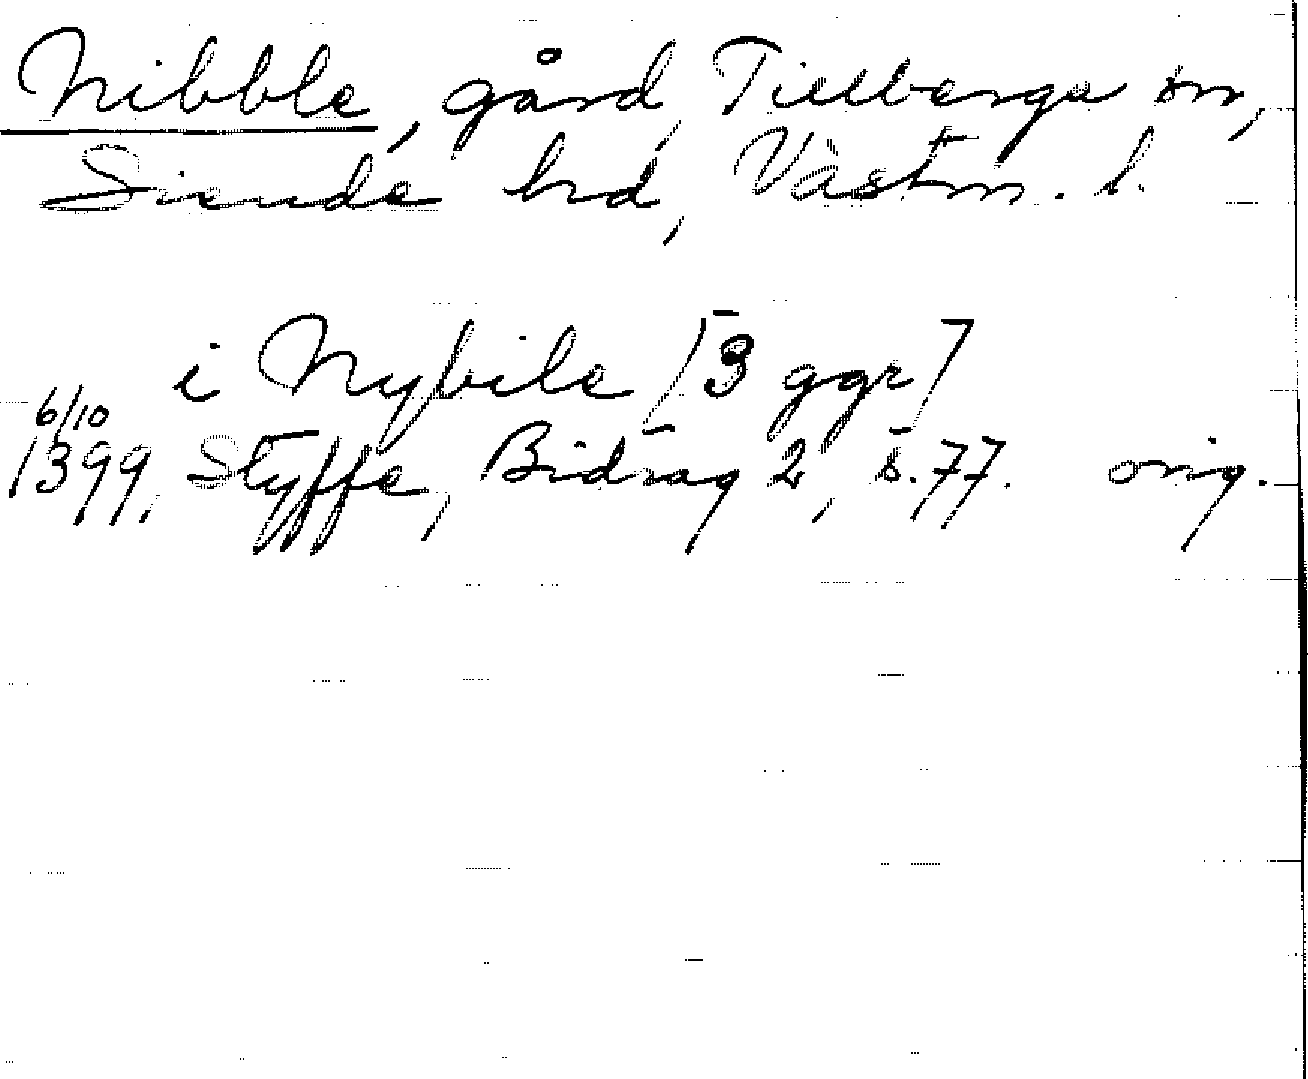 Nibble, gård, Tillberga sn,
Siende hd, Västm. l.
i Nybile [3 ggr]
6/10
1399. Styffe, Bidrag 2, s. 77. orig.